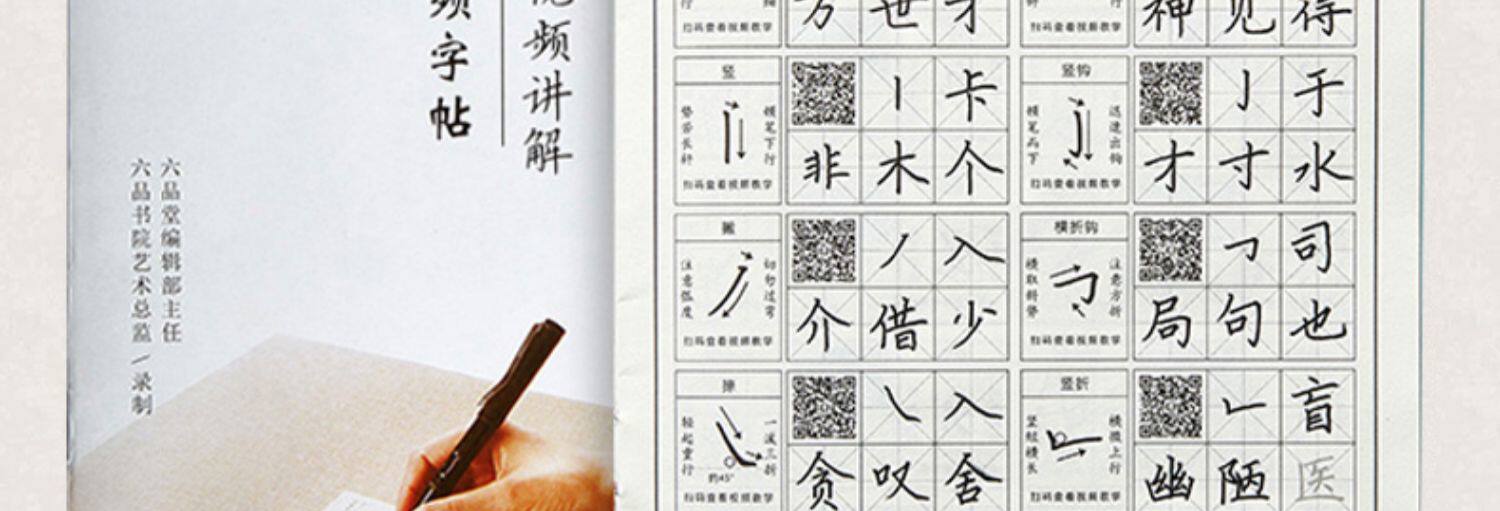 视频讲解
频字帖
六品堂编辑部主任
六品书院艺术总监/录制
方 世 才
扫码查看视频教学
神 见 得
扫码查看视频教学
竖
垫舌长针
顿笔下行
扫码查看视频教学
丨 卡
非 木 个
竖钩
顿笔而下
迅速出钩
扫码查看视频教学
亅 于
才 寸 水
撇
注意弧度
切勿过弯
扫码查看视频教学
丿 入
介 借 少
横折钩
横取斜势
注意方折
扫码查看视频教学
司
局 句 也
捺
轻起重行
一波三折
约45°
扫码查看视频教学
㇏ 入
贪 叹 舍
竖折
竖短横长
横微上行
扫码查看视频教学
𠃊 盲
幽 陋 医